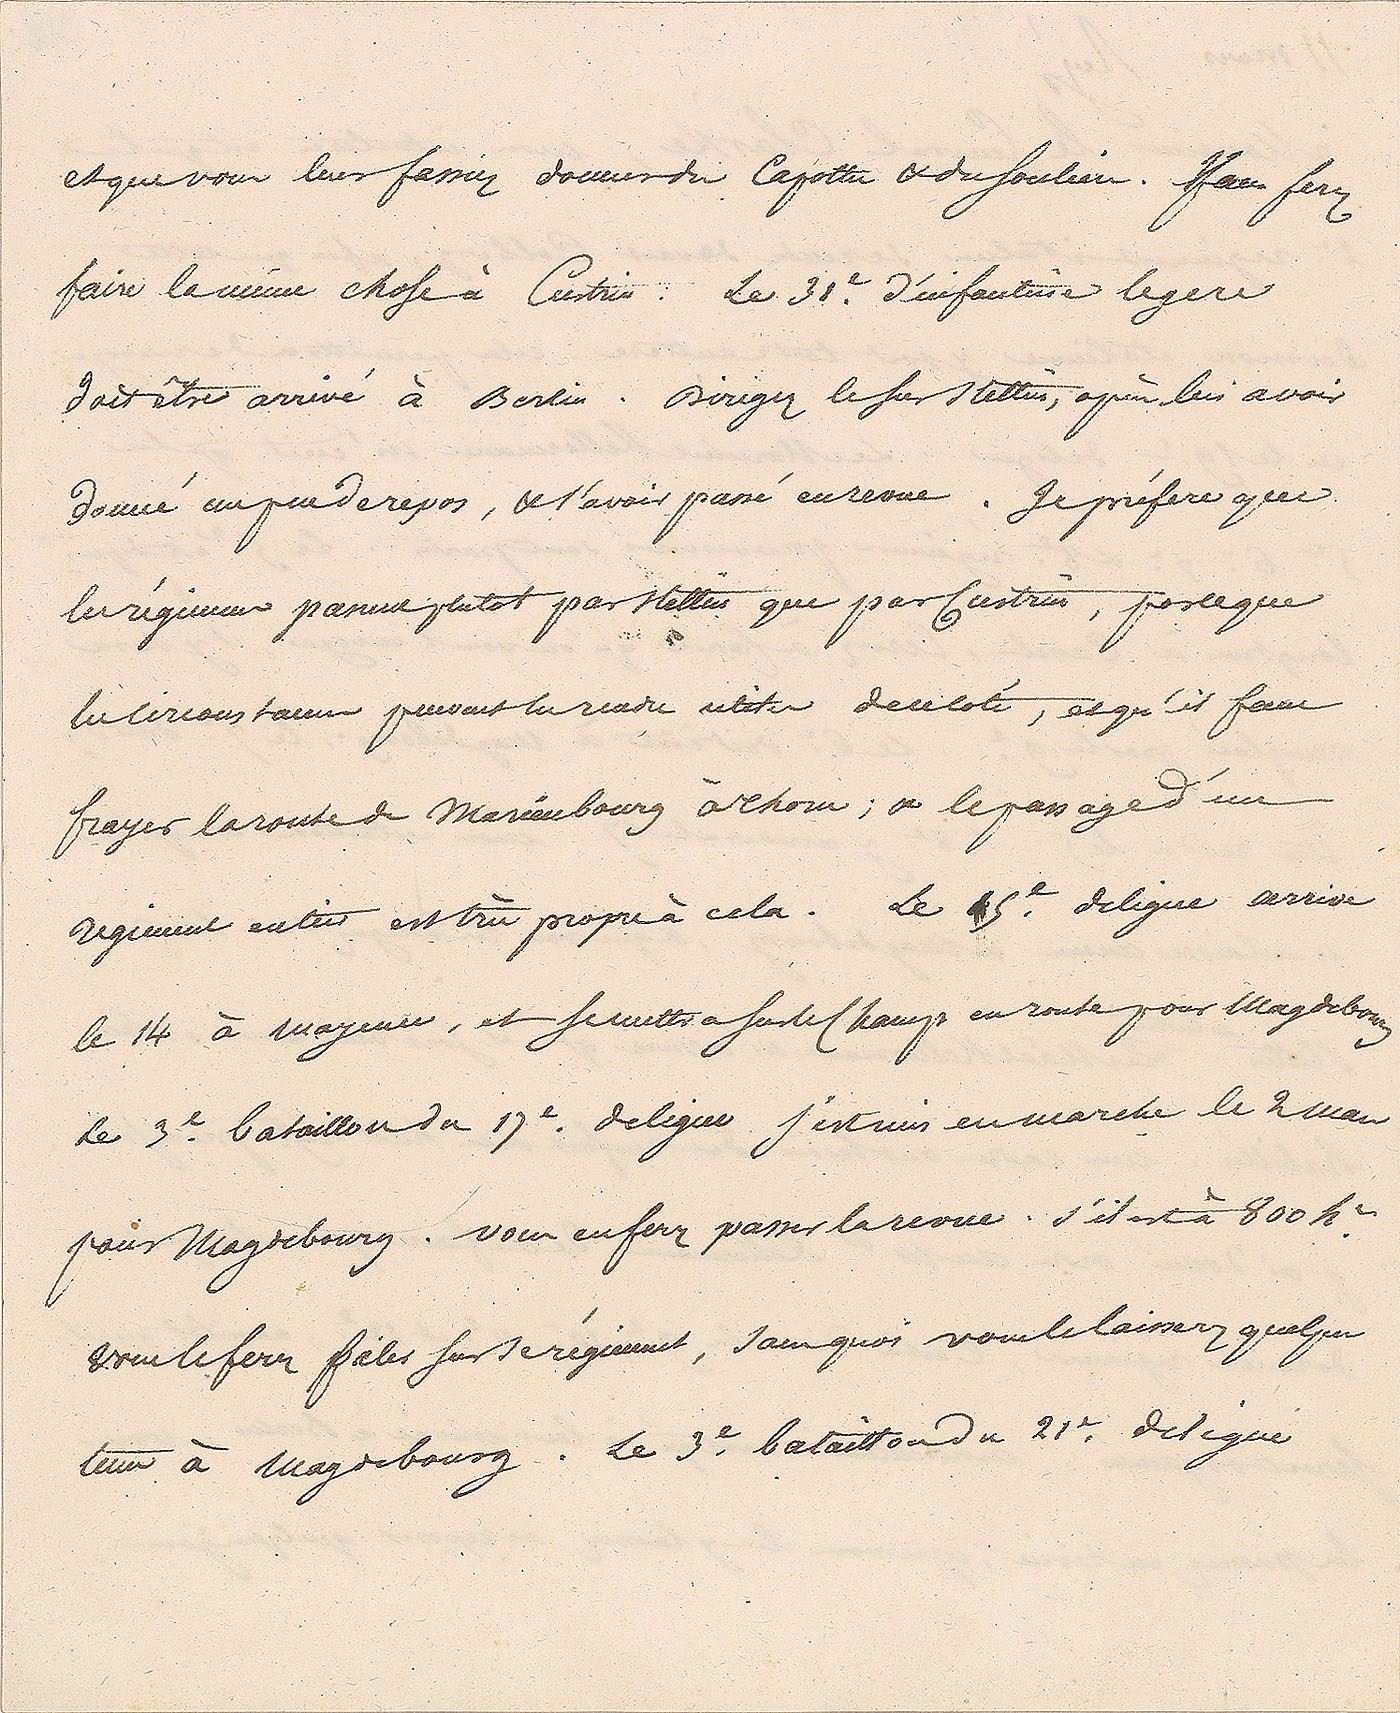 et que vous leur fassiez donner des Capottes & des souliers. Vous ferez
faire la même chose à Custrin. Le 31e. d'infanterie legere
doit être arrivé à Berlin. Dirigez le sur Stettin, après lui avoir
donné un peu de repos, & l'avoir passé en revue. Je préfere que
les régimens passent plutot par Stettin que par Custrin, parceque
les circonstances peuvent les rendre utiles de ce coté, et qu'il faut
frayer la route de Marienbourg à Thorn; & le passage d'un
regiment entier est très propre à cela. Le 15e. de ligne arrive
le 14 à Mayence, et se mettra sur le Champ en route pour Magdebourg
Le 3e. bataillon du 17e. de ligne s'est mis en marche le 2 mars
pour Magdebourg. vous en ferez passer la revue. s'il est à 800 hes.
vous le ferez filer sur le régiment, sans quoi vous le laisserez quelque
tems à Magdebourg. Le 3e. bataillon du 21e. de ligne